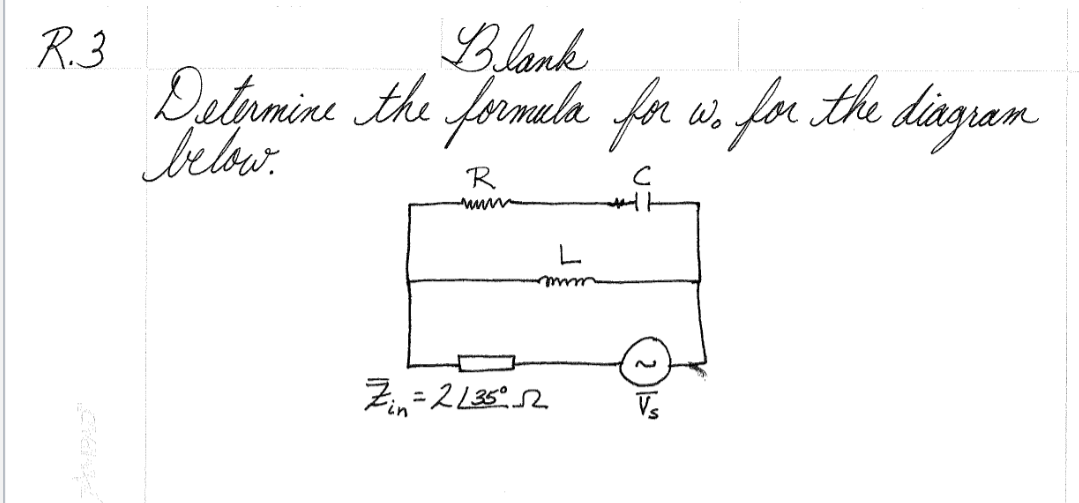 R.3
Blank
Determine the formula for ω₀ for the diagram
below.
R
C
L
Z̅in = 2∠35° Ω
V̅s